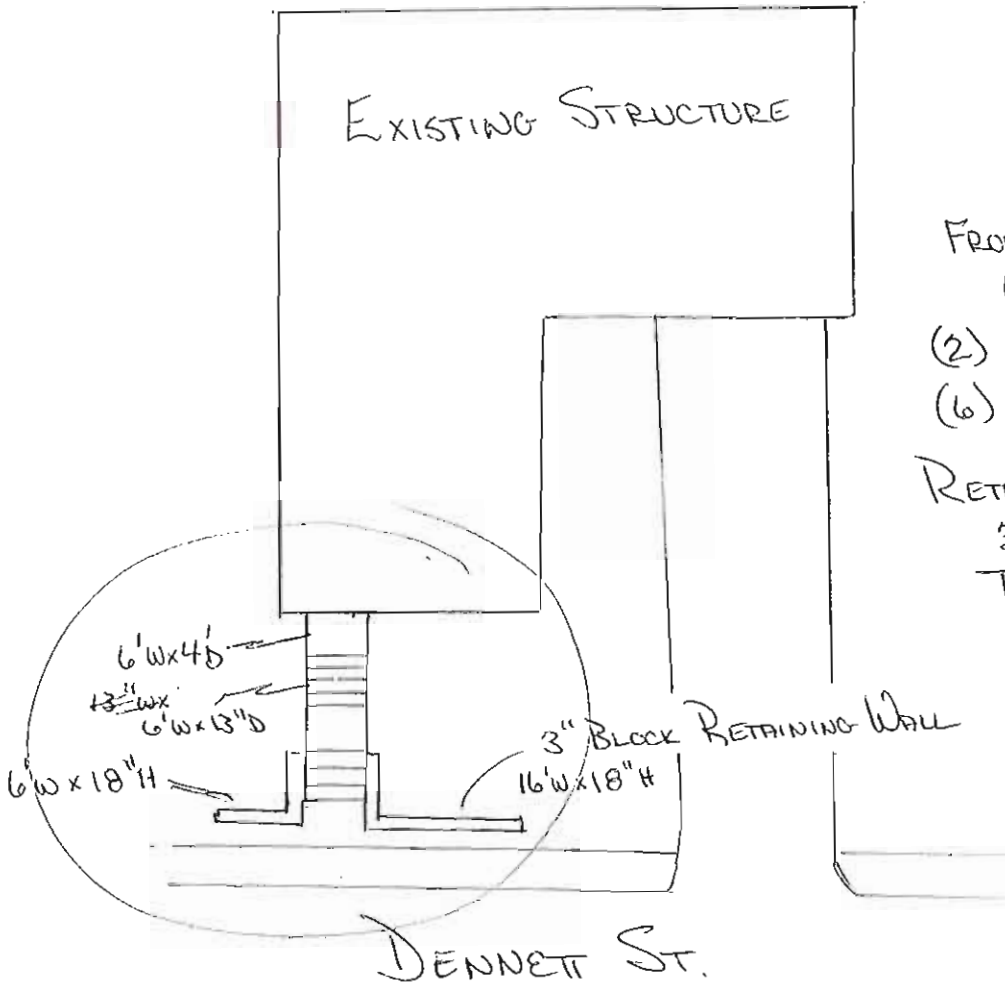 EXISTING STRUCTURE
(2)
(6)
6'W x 4'D
13"W x
6'W x 13"D
6'W x 18"H
3" BLOCK RETAINING WALL
16'W x 18"H
DENNETT ST.